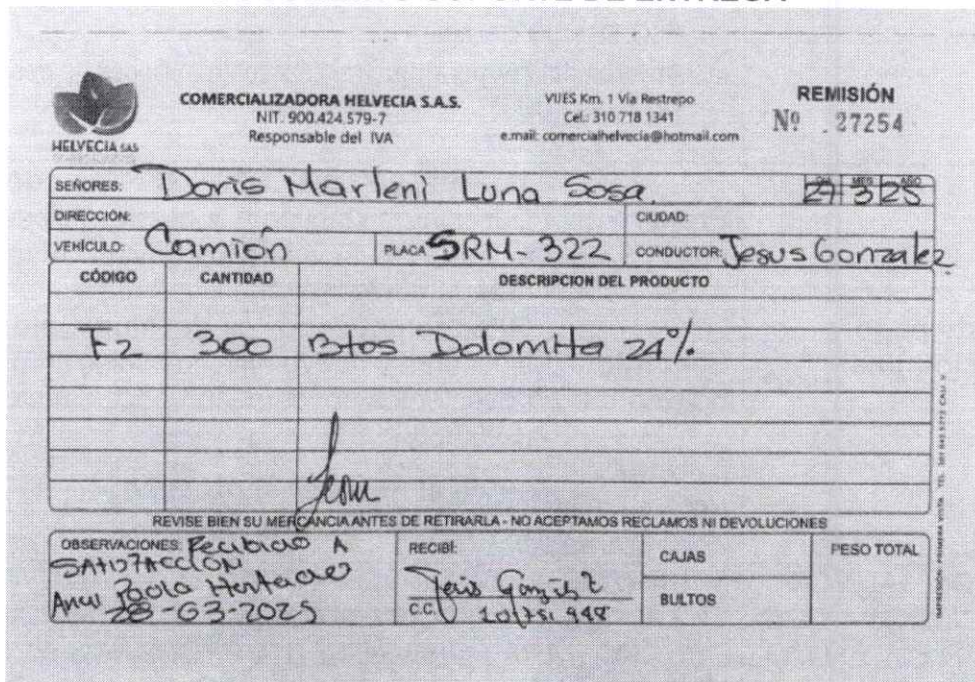 COMERCIALIZADORA HELVECIA S.A.S.
NIT. 900.424.579-7
Responsable del IVA
VIJES Km. 1 Vía Restrepo
Cel.: 310 718 1341
e.mail: comercialhelvecia@hotmail.com
REMISIÓN
Nº 27254
HELVECIA SAS
SEÑORES: Doris Marleni Luna Sosa.
DIA MES AÑO
27 3 25
DIRECCIÓN:
CIUDAD:
VEHÍCULO: Camión
PLACA SRM-322
CONDUCTOR: Jesus Gonzalez
CÓDIGO CANTIDAD DESCRIPCION DEL PRODUCTO
F2 300 Btos Dolomita 24%.
REVISE BIEN SU MERCANCIA ANTES DE RETIRARLA - NO ACEPTAMOS RECLAMOS NI DEVOLUCIONES
OBSERVACIONES: Recibido A
SATISFACCIÓN
Paola Hurtado
28-03-2025
RECIBÍ:
C.C.
CAJAS
BULTOS
PESO TOTAL